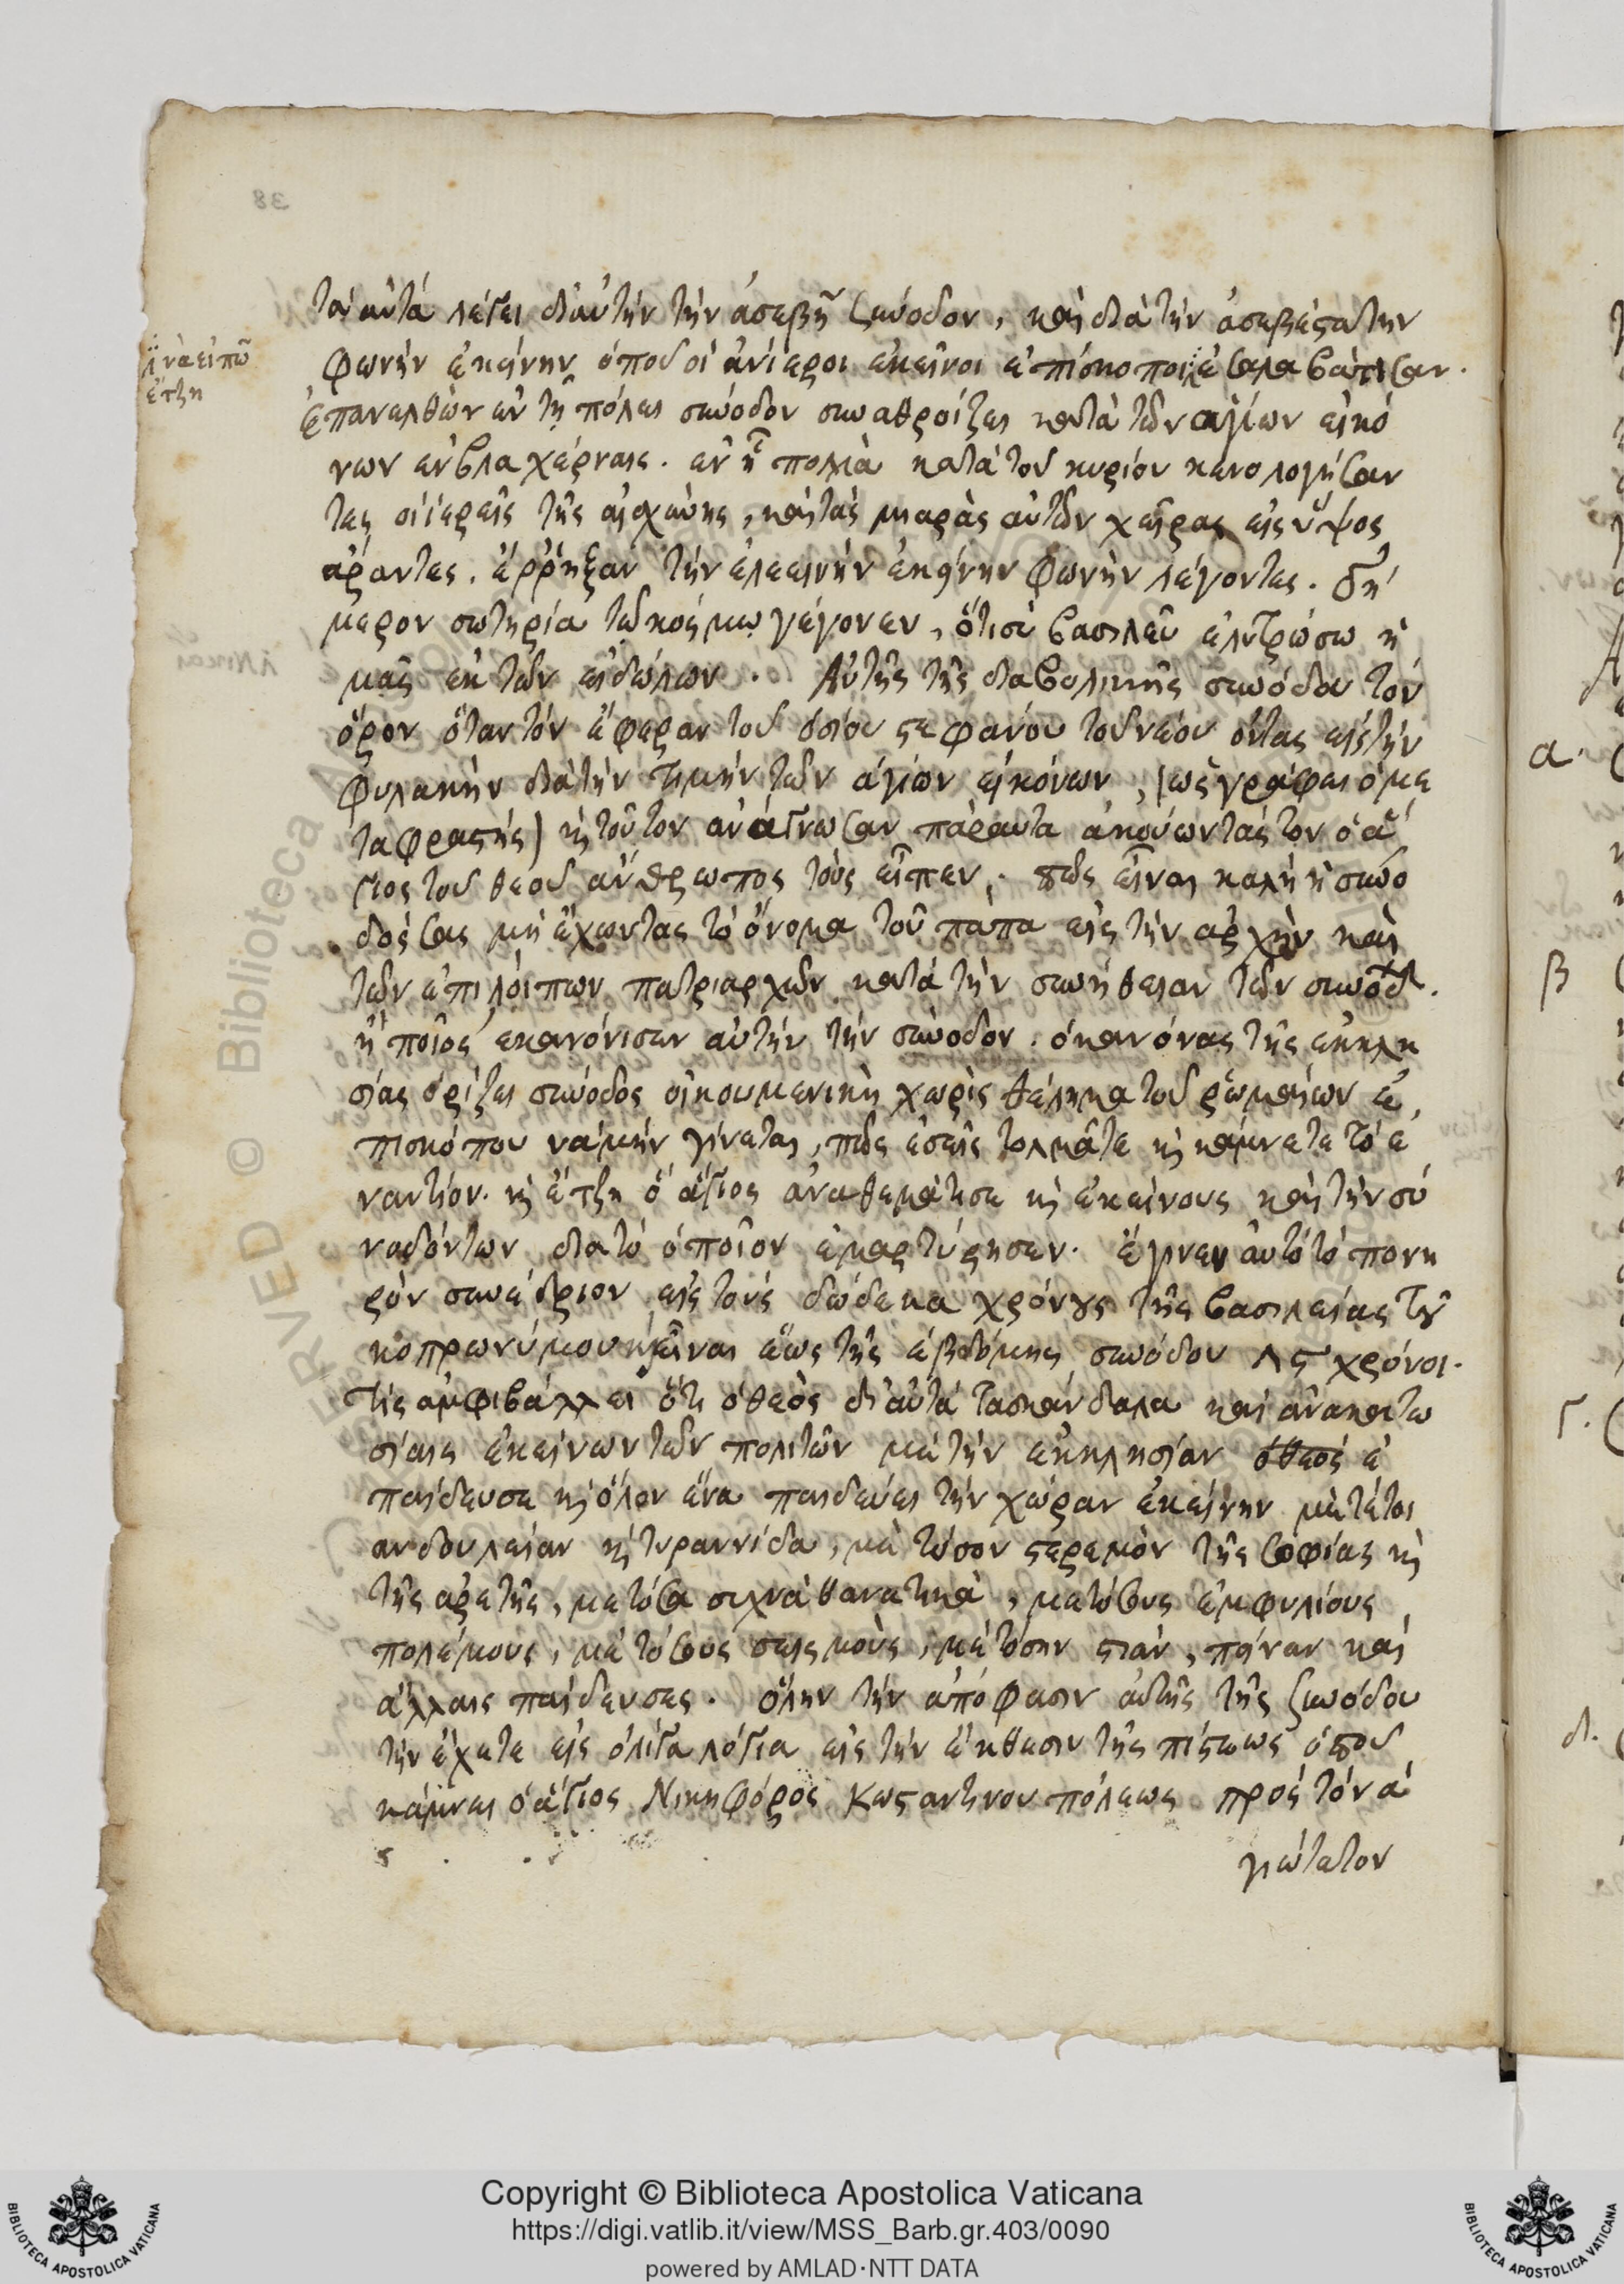 38
τὰ αὐτὰ λέγει δι αὐτὴν τὴν ἀσεβῆ σύνοδον, καὶ διὰ τὴν ἀσεβέστατην
ἵνα εἰπῶ
ἔτζη
φωνὴν ἐκείνην ὁποῦ οἱ ἀνίεροι ἐκεῖνοι ἐπίσκοποι
ἐπανελθὼν ἐν τῇ πόλει σύνοδον συναθροίζει κατὰ τῶν ἁγίων εἰκό
νων ἐν βλαχέρναις. ἐν ᾗ πολλὰ κατὰ τοῦ κυρίου κενολογήσαν
τες οἱ ἱερεῖς τῆς αἰσχύνης, καὶ τὰς μιαρὰς αὐτῶν χεῖρας εἰς ὕψος
ἄραντες. ἐῤῥηξαν τὴν ἐλεεινὴν ἐκείνην φωνὴν λέγοντες. σή
μερον σωτηρία τῷ κόσμῳ γέγονεν, ὅτι σὺ βασιλεῦ ἐλυτρώσω ἡ
μᾶς ἐκ τῶν εἰδώλων. Αὐτῆς τῆς διαβολικῆς συνόδου τὸν
ὅρον ὅταν τὸν ἔφεραν τοῦ ὁσίου στεφάνου τοῦ νέου ὄντας εἰς τὴν
φυλακὴν διὰ τὴν τιμὴν τῶν ἁγίων εἰκόνων, (ὡς γράφει ὁ με
ταφραστής) κ τοῦτον ἀνάγνωσαν πάραυτα ἀκούωντάς τον ὁ ἅ
γιος τοῦ θεοῦ ἄνθρωπος τοὺς εἶπεν. πῶς εἶναι καλὴ ἡ σύνο
δός σας μὴ ἔχωντας τὸ ὄνομα τοῦ πάπα εἰς τὴν ἀρχὴν καὶ
τῶν ἐπιλοίπων πατριαρχῶν κατὰ τὴν συνήθειαν τῶν συνόδ.
ἢ ποῖος ἐκανόνισεν αὐτὴν τὴν σύνοδον. ὁ κανόνας τῆς ἐκκλη
σίας ὁρίζει σύνοδος οἰκουμενικὴ χωρὶς θέλημα τοῦ ῥωμαίων ἐ
πισκόπου νὰ μὴν γίνεται, πῶς ἐσεῖς τολμᾶτε κ κάμνετε τὸ ἐ
ναντίον. κ ἔτζη ὁ ἅγιος ἀναθεμάτισε κ ἐκείνους καὶ τὴν σύ
νοδόν των διὰ τὸ ὁποῖον ἐμαρτύρησεν. ἔγινεν αὐτὸ τὸ πονη
ρὸν συνέδριον εἰς τοὺς δώδεκα χρόνους τῆς βασιλείας τοῦ
κοπρωνύμου κ εἶναι ἕως τῆς ἑβδόμης συνόδου λς χρόνοι.
τίς ἀμφιβάλλει ὅτι ὁ θεὸς δι αὐτὰ τὰ σκάνδαλα καὶ ἀνακατω
σίαις ἐκείνων τῶν πολιτῶν μὲ τὴν ἐκκλησίαν ὁ θεὸς ἐ
παίδευσε κ ὅλον ἕνα παιδεύει τὴν χώραν ἐκείνην μὲ τέτοι
αν δουλείαν κ τυραννίδα, μὲ τόσον στερεμὸν τῆς σοφίας κ
τῆς ἀρετῆς, μὲ τόσα συχνὰ θανατικὰ, μὲ τόσους ἐμφυλίους
πολέμους, μὲ τόσους σεισμοὺς, μὲ τόσην στιὰν, πείναν καὶ
ἄλλαις παίδευσες. ὅλην τὴν ἀπόφασιν αὐτῆς τῆς συνόδου
τὴν ἔχετε εἰς ὀλίγα λόγια εἰς τὴν ἔκθεσιν τῆς πίστεως ὁποῦ
κάμνει ὁ ἅγιος Νικηφόρος Κωσταντινουπόλεως πρὸς τὸν ἁ
γιώτατον
α.
β
γ.
δ.
Copyright © Biblioteca Apostolica Vaticana
https://digi.vatlib.it/view/MSS_Barb.gr.403/0090
powered by AMLAD·NTT DATA
BIBLIOTECA APOSTOLICA VATICANA
BIBLIOTECA APOSTOLICA VATICANA